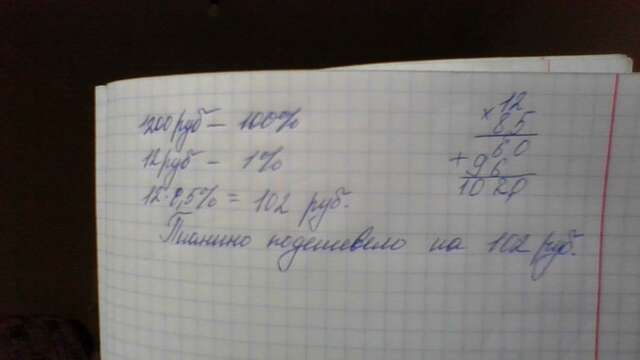 1200 руб - 100%
12 руб - 1%
12·8,5% = 102 руб.
Пианино подешевело на 102 руб.
×12
85
60
+96
1020